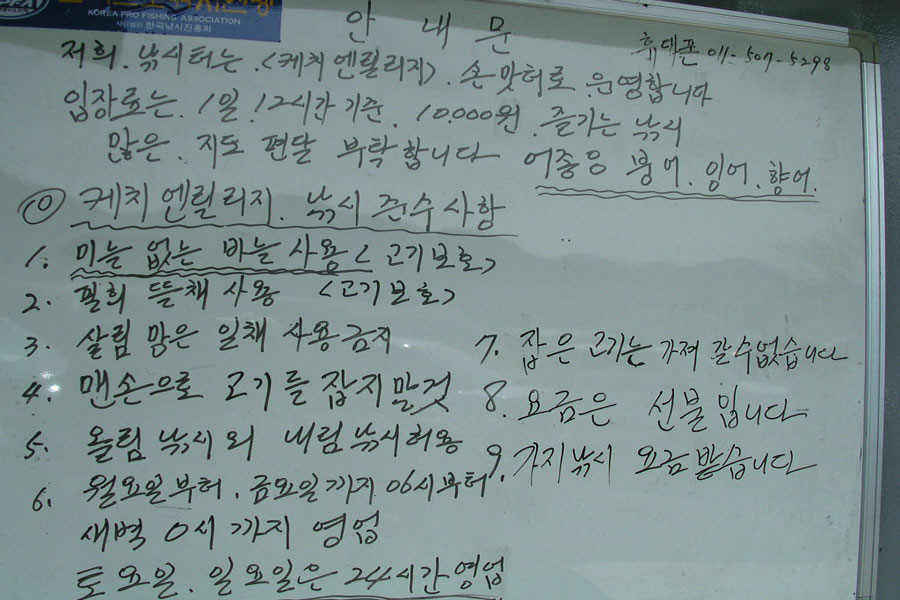 KOREA PRO FISHING ASSOCIATION
사단법인 한국낚시진흥회
안 내 문
휴대폰 011-507-5298
저희. 낚시터는. <케치엔릴리지>. 손맛터로 운영합니다
입장료는. 1일. 12시간 기준. 10.000원. 즐기는 낚시
많은. 지도 편달 부탁합니다 어종응 붕어. 잉어. 향어.
◎ 케치엔릴리지. 낚시 준수사항
1. 미늘 없는 바늘 사용 <고기보호>
2. 필희 뜰채 사용 <고기보호>
3. 살림망은 일채 사용금지
4. 맨손으로 고기를 잡지말것
5. 올림낚시외 내림낚시허용
6. 월요일부터. 금요일까지 06시부터
새벽 0시까지 영업
토요일. 일요일은 24시간영업
7. 잡은 고기는 가져 갈수없습니다
8. 요금은 선불입니다
9. 가지낚시 요금받습니다